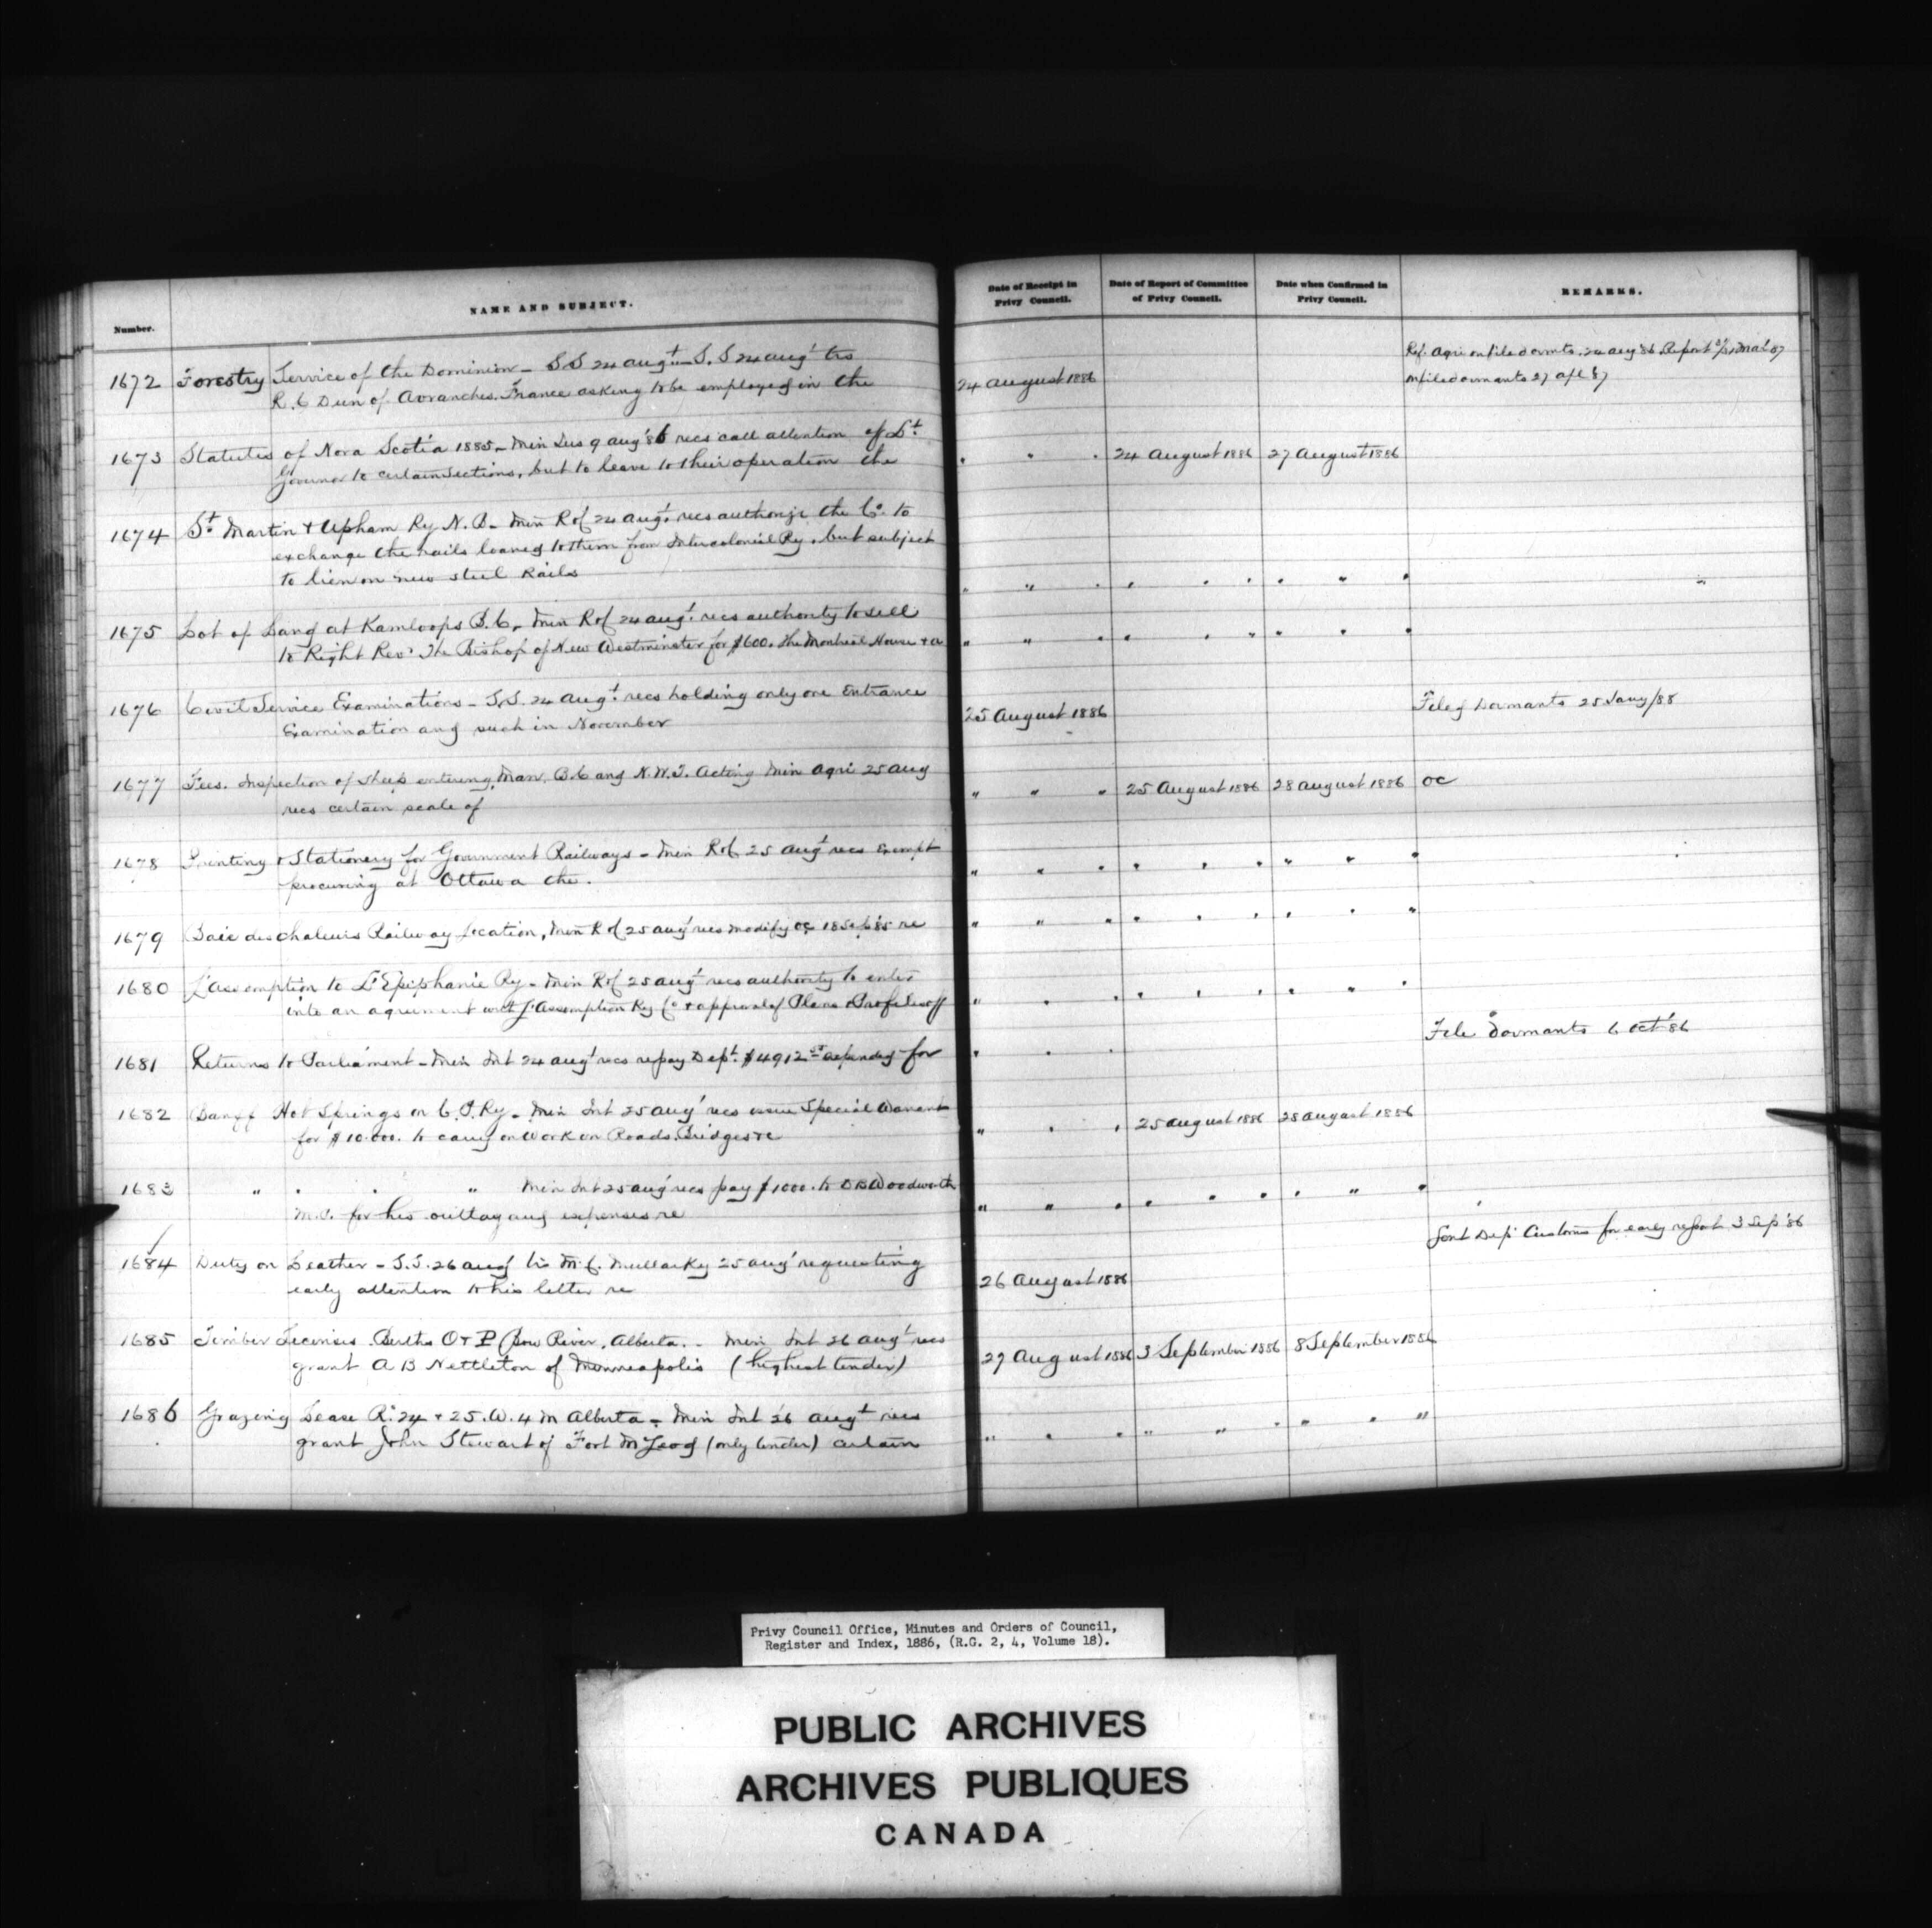 Number.
NAME AND SUBJECT.
Date of Receipt in Privy Council.
Date of Report of Committee of Privy Council.
Date when Confirmed in Privy Council.
REMARKS.
1672 Forestry Service of the Dominion – S.S 24 augt – S.S 24 augt trs
R.C Dun of Avranches. France asking to be employed in the
24 August 1886
Ref. Agri on file dormts. 24 aug 86 Report Mar 87
on file dormants 27 apl 87
1673 Statutes of Nova Scotia 1885 – Min Jus 9 aug '86 recs call attention of Lt
Governor to certain sections, but to leave to their operation the
" " " 24 August 1886 27 August 1886
1674 St. Martin & Upham Ry N.B – Min R of 24 augt recs authorize the Co. to
exchange the rails loaned to them from Intercolonial Ry. but subject
to lien on new steel Rails
" " " " " " " " "
1675 Lot of Land at Kamloops B.C. Min R of 24 augt. recs authority to sell
to Right Revd The Bishop of New Westminster for $600. the Montreal House & a
" " " " " " " " "
1676 Civil Service Examinations – S.S. 24 Augt. recs holding only one Entrance
Examination and such in November
25 August 1886
Filed Dormants 25 Jany/88
1677 Fees. Inspection of Sheep entering Man. B.C and N.W.T. Acting Min Agri 25 aug
recs certain scale of
" " " 25 August 1886 28 August 1886 OC
1678 Printing & Stationery for Government Railways – Min R of 25 augt recs Exempt
procuring at Ottawa the.
" " " " " " " " "
1679 Baie des Chaleurs Railway Location, Min R of 25 augt recs modify OC 18 Sep '85 re
" " " " " " " " "
1680 L'Assomption to L'Epiphanie Ry – Min R of 25 augt recs authority to enter
into an agreement with L'Assomption Ry Co & approval of Plans & Profiles of
" " " " " " " " "
1681 Returns to Parliament – Min Int 24 augt recs repay Dept. $4912 expended for
" " "
File Dormants 6 Oct '86
1682 Banff Hot Springs on C.P.Ry – Min Int 25 augt recs issue Special Warrant
for $10.000. to carry on Work on Roads. Bridges &c
" " " 25 August 1886 28 August 1886
1683 " " " " Min Int 25 augt recs pay $1000. to D B Woodworth
M.P. for his outlay and expenses re
" " " " " " " " "
1684 Duty on Leather – S.S. 26 augt trs M.C. Mullarky 25 augt requesting
early attention to his letter re
26 August 1886
Sent Dep Customs for early report 3 Sep '86
1685 Timber Licenses. Berths O & P Bow River, Alberta. – Min Int 26 augt recs
grant A B Nettleton of Minneapolis (highest tender)
27 August 1886 3 September 1886 8 September 1886
1686 Grazing Lease R. 24 & 25. W. 4 M Alberta – Min Int 26 augt recs
grant John Stewart of Fort McLeod (only tender) certain
" " " " " " " "
Privy Council Office, Minutes and Orders of Council,
Register and Index, 1886, (R.G. 2, 4, Volume 18).
PUBLIC ARCHIVES
ARCHIVES PUBLIQUES
CANADA